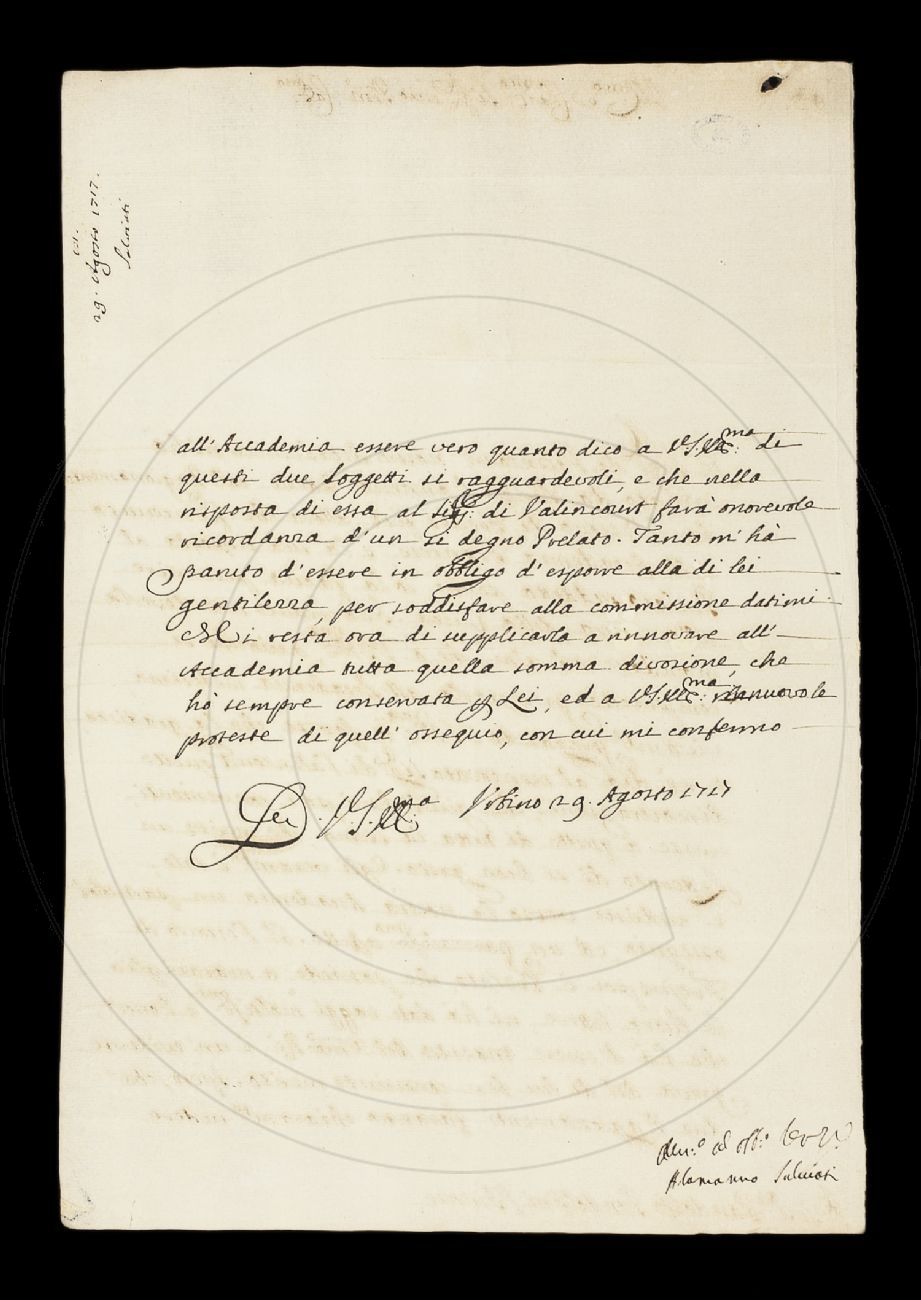 29. Agosto 1717.
Salviati
all' Accademia essere vero quanto dico a V.S. Ill.ma di
questi due soggetti si ragguardevoli, e che nella
risposta di essa al Sig: di Valincourt farà onorevole
ricordanza d'un si degno Prelato. Tanto m' hà
paruto d'essere in obbligo d'esporre alla di lei
gentilezza, per soddisfare alla commissione datimi.
Mi resta ora di supplicarla a rinnovare all'
Accademia tutta quella somma divozione, che
hò sempre conservata p Lei, ed a V.S. Ill.ma rinnuovo le
proteste di quell' ossequio, con cui mi confermo
Di V.S. Ill.ma Urbino 29. Agosto 1717
Dev.o ed obb.o Ser.re
Alamanno Salviati